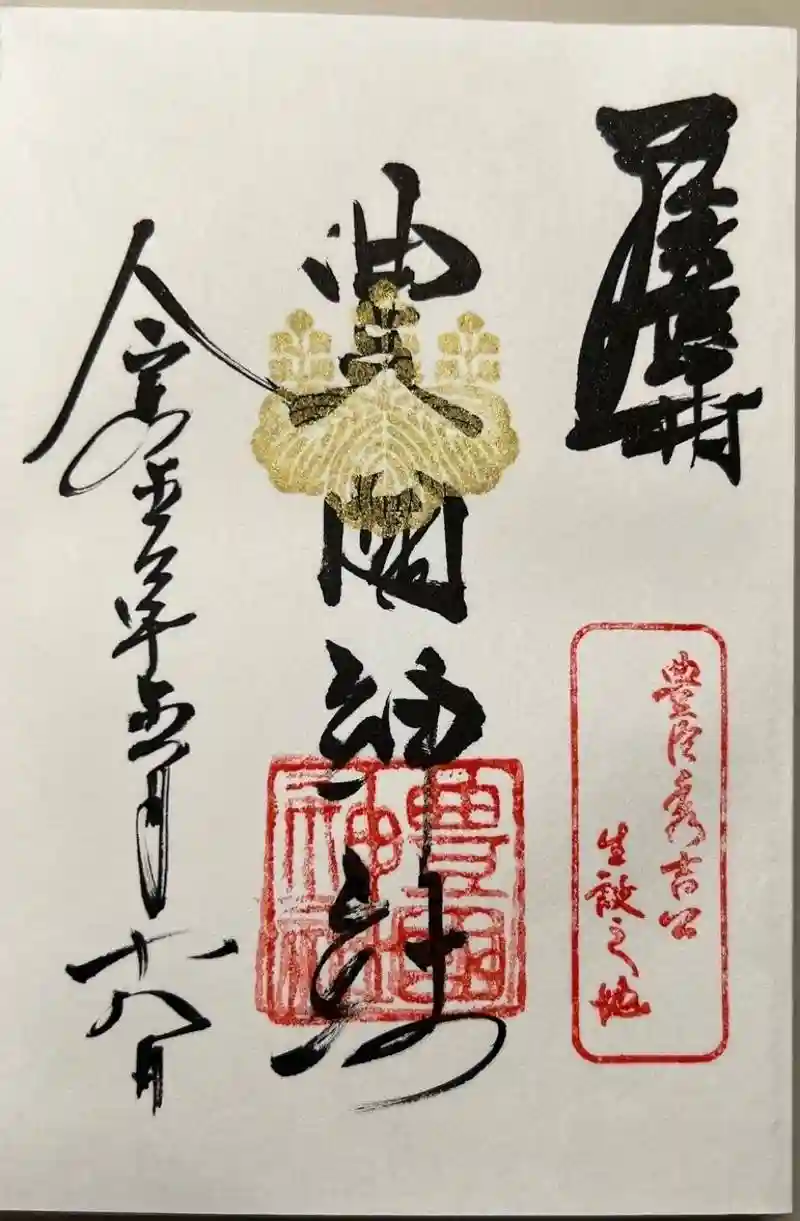 豊臣秀吉公
生誕之地
豊國神社
豊國神社
令和五年五月十八日